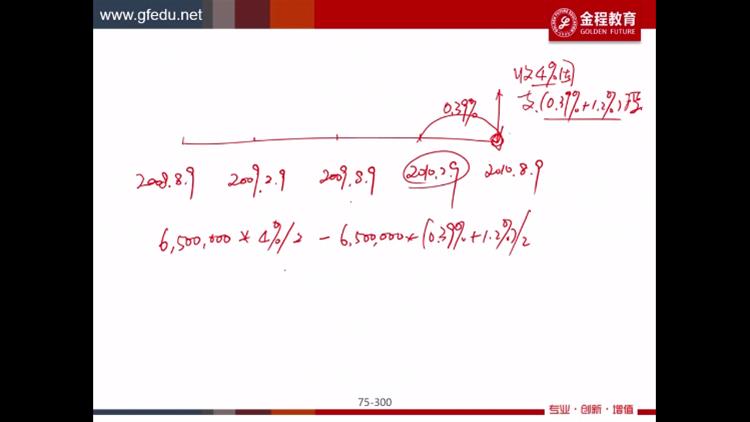 www.gfedu.net
金程教育
GOLDEN FUTURE
收4%固
支(0.39%+1.2%)浮
0.39%
2008.8.9 2009.2.9 2009.8.9 2010.2.9 2010.8.9
6,500,000 * 4%/2 - 6,500,000 * (0.39%+1.2%)/2
75-300
专业·创新·增值